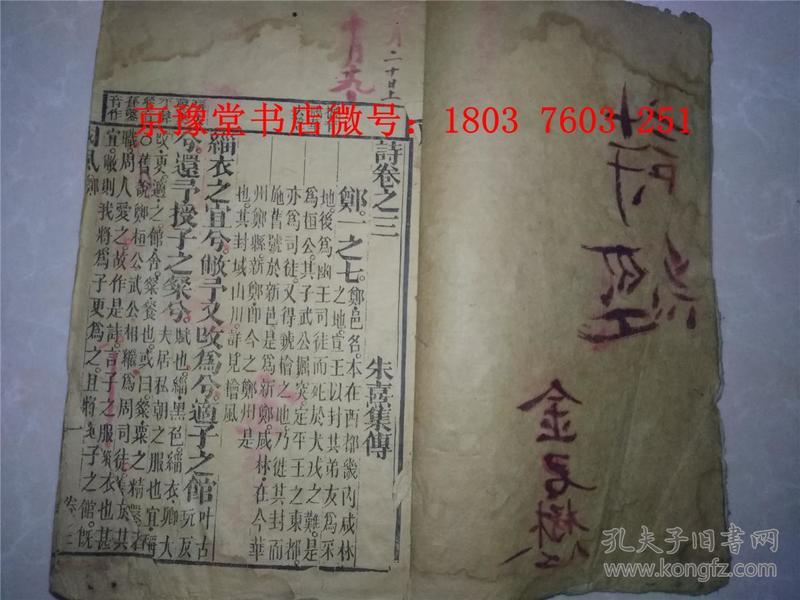 京豫堂书店微号：1803 7603 251
詩經
金
二十日
十月
詩卷之三
朱熹集傳
鄭一之七。鄭。邑名。本在西都畿內咸林
之地。宣王以封其弟友爲采
地。後爲幽王司徒。而死於犬戎之難。是
爲桓公。其子武公掘突。定平王之東都。
亦爲司徒。又得虢檜之地。乃徙其封。而
施舊號於新邑。是爲新鄭。咸林。在今華
州鄭縣。新鄭。卽今之鄭州是
也。其封域山川。詳見檜風
緇衣之宜兮。敝予又改爲兮。適子之館
叶古
玩反
兮。還予授子之粲兮。
賦也。緇。黑色。緇衣。卿大
夫居私朝之服也。宜。稱
改。更。適。之。館。舍。粲。餐也。或曰。粲。粟之精鑿者
○舊說。鄭桓公武公。相繼爲周司徒。善於其
職。周人愛之。故作是詩。言子之服緇衣也。甚
宜。敝則我將爲子更爲之。且將適子之館。旣
國風 鄭
一
卷三
孔夫子旧书网
www.kongfz.com